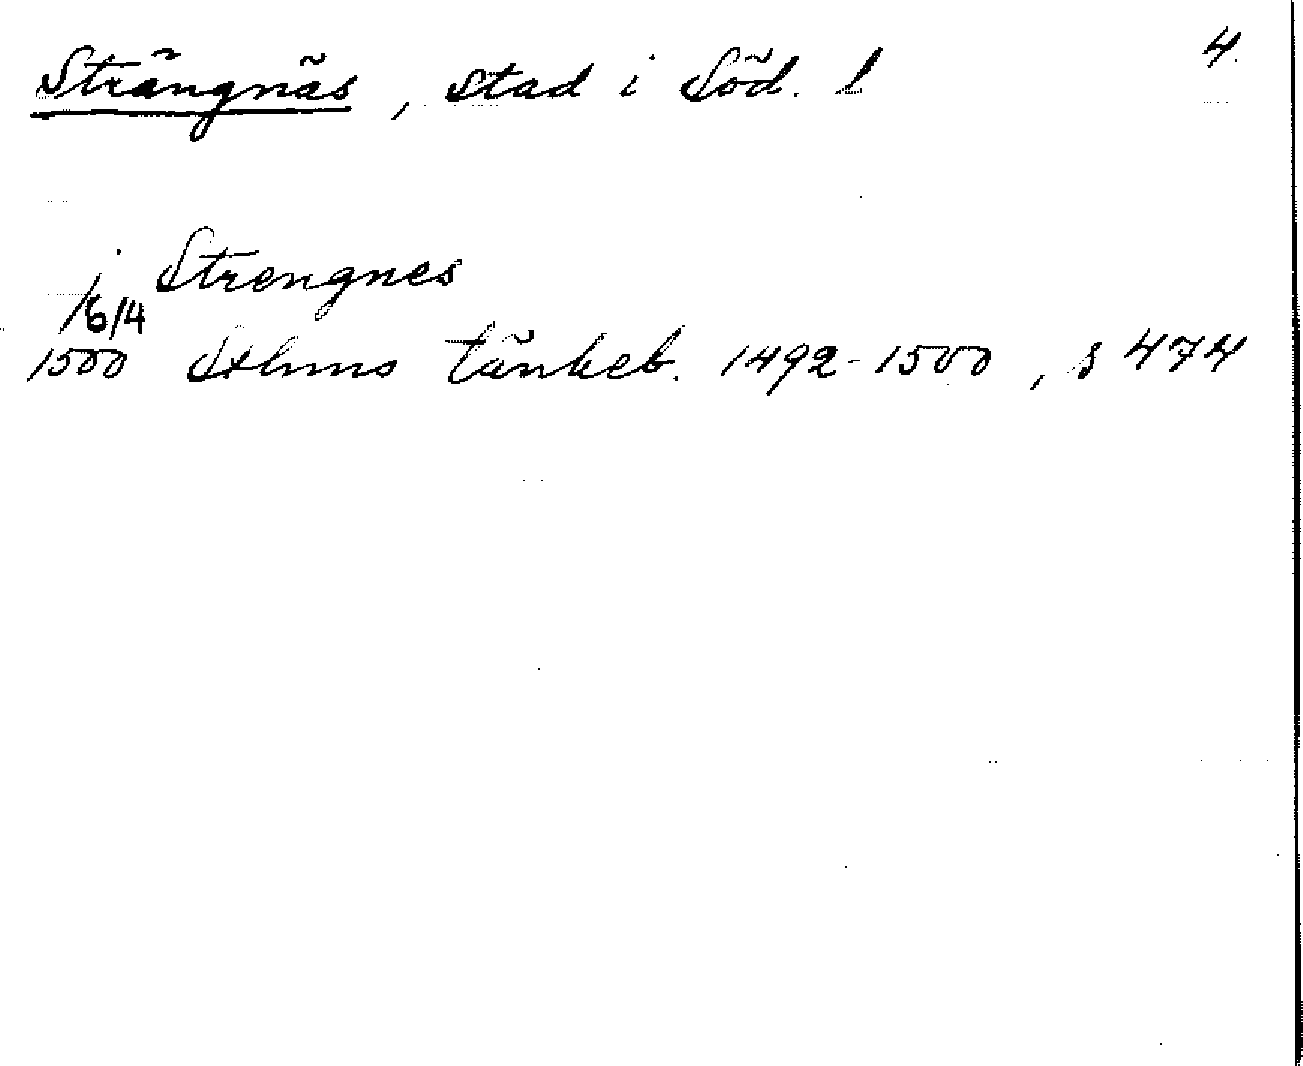 Strängnäs, stad i Söd. l 4.
i Strengnes
16/4
1500 Sthms tänkeb. 1492-1500, s 474